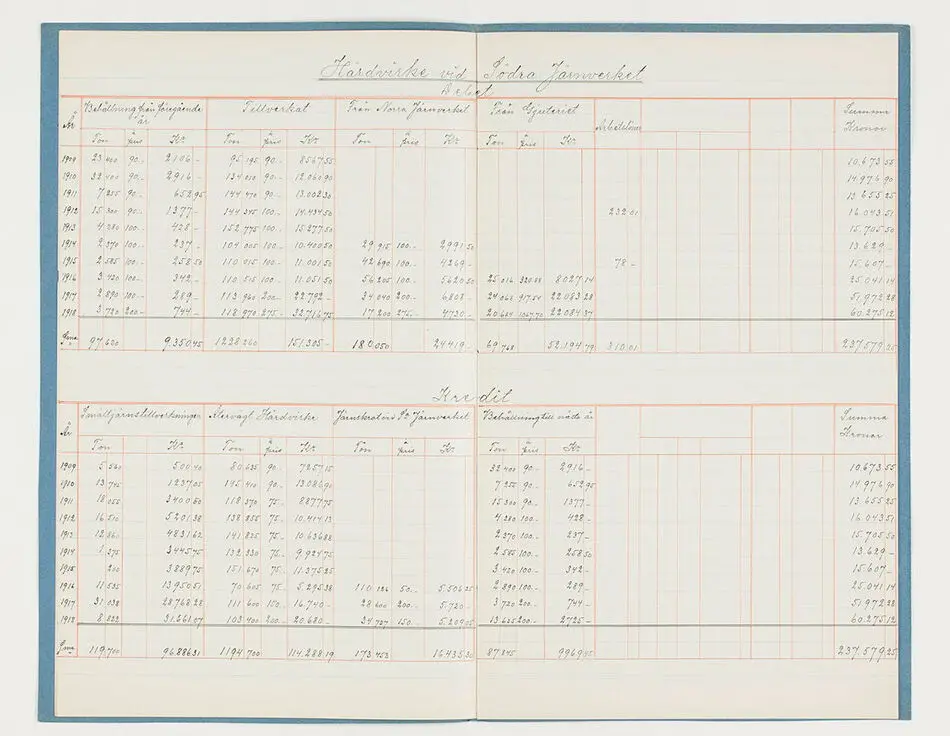 Härdvirke vid Södra Järnverket
Debet
År Behållning från föregående år Tillverkat Från Norra Järnverket Från Gjuteriet Arbetslöner Summa Kronor
Ton à pris Kr Ton pris Kr Ton à pris Kr Ton pris Kr
1909 23 400 90.- 2106 - 95 195 90.- 8567 55 10.673 55
1910 32 400 90.- 2916 - 134 010 90.- 12.060 90 14.976 90
1911 7 255 90.- 652 95 144 470 90.- 13.002 30 13.655 25
1912 15 300 90.- 1377 - 144 345 100.- 14.434 50 232 01 16.043 51
1913 4 280 100.- 428 - 152 775 100.- 15.277 50 15.705 50
1914 2 370 100.- 237 - 104 005 100.- 10.400 50 29 915 100.- 2991 50 13.629 -
1915 2 585 100.- 258 50 110 015 100.- 11.001 50 42 690 100.- 4269 - 78 - 15.607 -
1916 3 420 100.- 342 - 110 515 100.- 11.051 50 56 205 100.- 5620 50 25 016 320.88 8027 14 25.041 14
1917 2 890 100.- 289 - 113 960 200.- 22.792 - 34 040 200.- 6808 - 24 068 917.54 22.083 28 51.972 28
1918 3 720 200.- 744 - 118 970 275.- 32.716 75 17 200 275.- 4730 - 20 684 1067.70 22.084 37 60.275 12
Sma 97,620 9.350 45 1228 260 151.305 - 180 050 24.419 - 69 768 52.194 79 310 01 237.579 25
Kredit
År Smältjärnstillverkningen Återvägt Härdvirke Järnskrot vid Sa Järnverket Behållning till nästa år Summa Kronor
Ton Kr Ton à pris Kr Ton à pris Kr Ton pris Kr
1909 5 560 500 40 80 635 90.- 7257 15 32 400 90.- 2916 - 10.673 55
1910 13 745 1237 05 145 410 90.- 13.086 90 7 255 90.- 652 95 14.976 90
1911 18 055 3400 50 118 370 75.- 8877 75 15 300 90.- 1377 - 13.655 25
1912 16 510 5201 38 138 855 75.- 10.414 13 4 280 100.- 428 - 16.043 51
1913 12 860 4831 62 141 825 75.- 10.636 88 2 370 100.- 237 - 15.705 50
1914 1 375 3445 75 132 330 75.- 9.924 75 2 585 100.- 258 50 13.629 -
1915 200 3889 75 151 670 75.- 11.375 25 3 420 100.- 342 - 15.607 -
1916 11 535 13950 51 70 605 75.- 5.295 38 110 126 50.- 5.506 25 2 890 100.- 289 - 25.041 14
1917 31 038 28768 28 111 600 150.- 16.740 - 28 600 200.- 5.720 - 3 720 200.- 744 - 51.972 28
1918 8 822 31.661 07 103 400 200.- 20.680 - 34 727 150.- 5.209 05 13 625 200.- 2725 - 60.275 12
Sma 119,700 96.886 31 1194 700 114.288 19 173 453 16435 30 87 845 9969 45 237.579 25